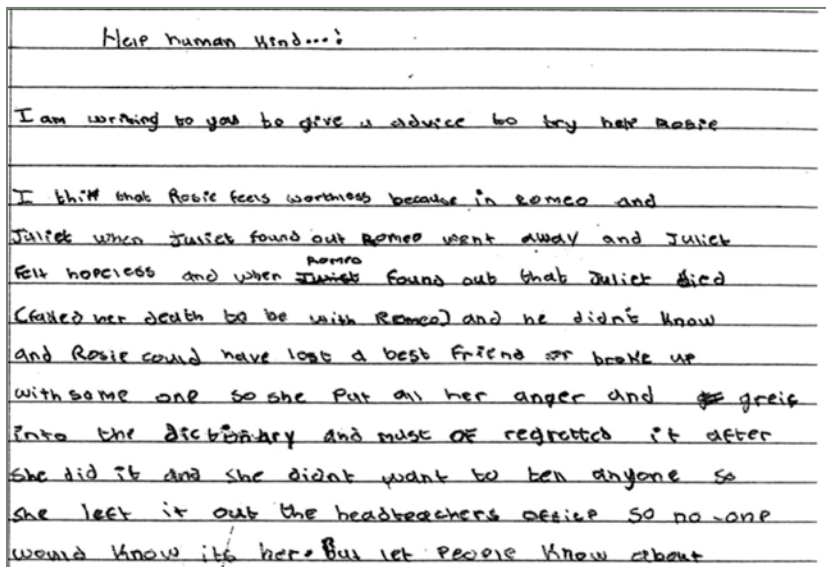 Help human kind...!
I am writing to you to give a advice to try help Rosie
I think that Rosie feels worthless because in Romeo and
Juliet when Juliet found out Romeo went away and Juliet
felt hopeless and when Romeo found out that Juliet died
(faked her death to be with Romeo) and he didn't know
and Rosie could have lost a best friend or broke up
with some one so she put all her anger and greif
into the dictionary and must of regretted it after
she did it and she didnt want to tell anyone so
she left it out the headteachers office so no-one
would know its her. But let people know about